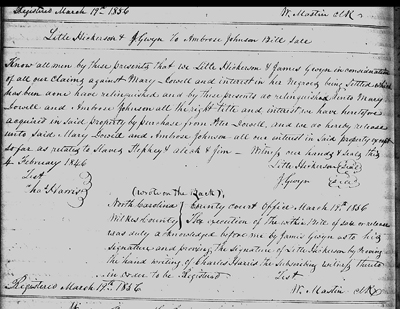 Registered March 19th 1856 W. Mastin Clk
Litle Hickerson & J Gwyn To Ambrose Johnson Bill Sale
Know all men by these presents that we Litle Hickerson & James Gwyn in consideration
of all our claims against Mary Lowell and interest in his Negroes being settled which
has been done have relinquished and by these presents do relinquish unto Mary
Lowell and Ambrose Johnson all the right title and interest we have heretofore
acquired in said property by purchase from Lowell, and we do hereby release
unto said Mary Lowell and Ambrose Johnson all our interest in said property except
so far as relates to Slaves & & Jim — Witness our hands & Seals this
4 February 1846 Litle Hickerson Seal
Test J. Gwyn Seal
Chas Harris
(wrote on the Back)
North Carolina County Court Office March 19th 1856
Wilkes County The execution of the within Bill of sale or release
was duly acknowledged before me by James Gwyn as to his
signature and proving the signature of Litle Hickerson by proving
the hand writing of Charles Harris the subscribing witness thereto
in order to be Registered Test
Registered March 19th 1856 W. Mastin Clk